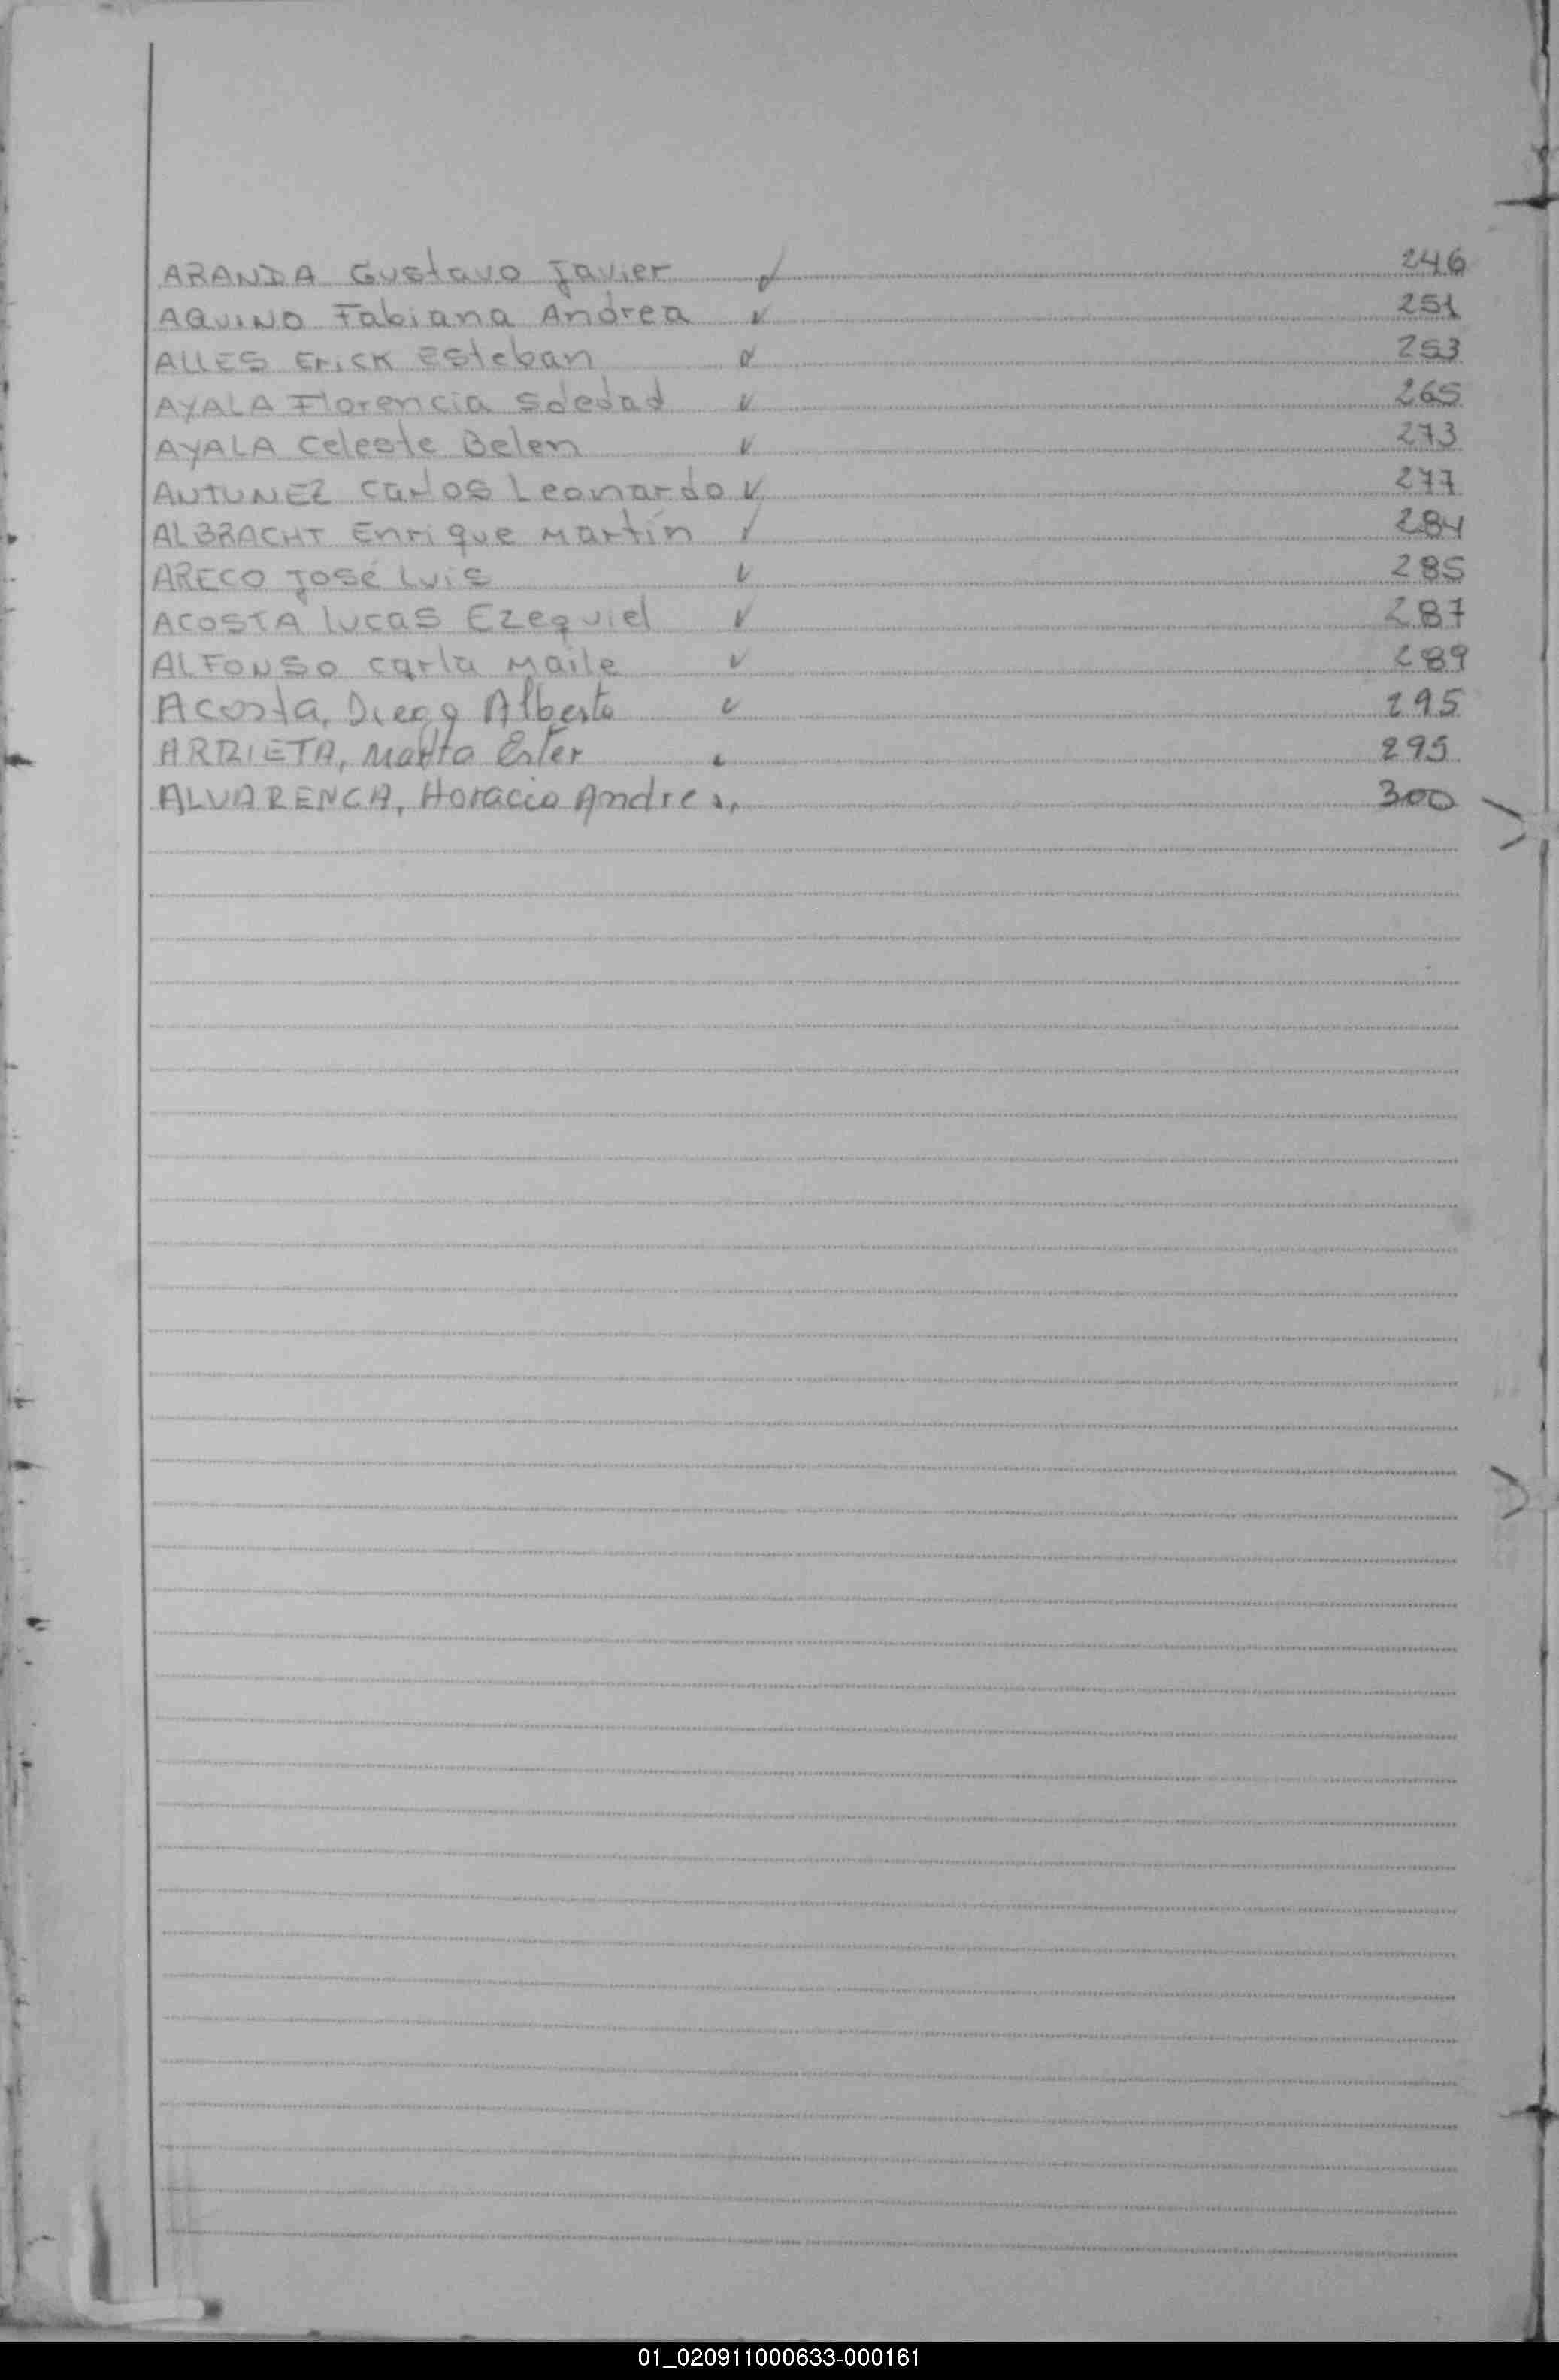 ARANDA Gustavo Javier ✓ 246
AQUINO Fabiana Andrea ✓ 251
ALLES Erick Esteban ✓ 253
AYALA Florencia Soledad ✓ 265
AYALA Celeste Belen ✓ 273
ANTUNEZ Carlos Leonardo ✓ 277
ALBRACHT Enrique Martín ✓ 284
ARECO José Luis ✓ 285
ACOSTA Lucas Ezequiel ✓ 287
ALFONSO Carla Maile ✓ 289
Acosta, Diego Alberto ✓ 295
ARRIETA, Marta Ester 295
ALVARENGA, Horacio Andres, 300
01_020911000633-000161